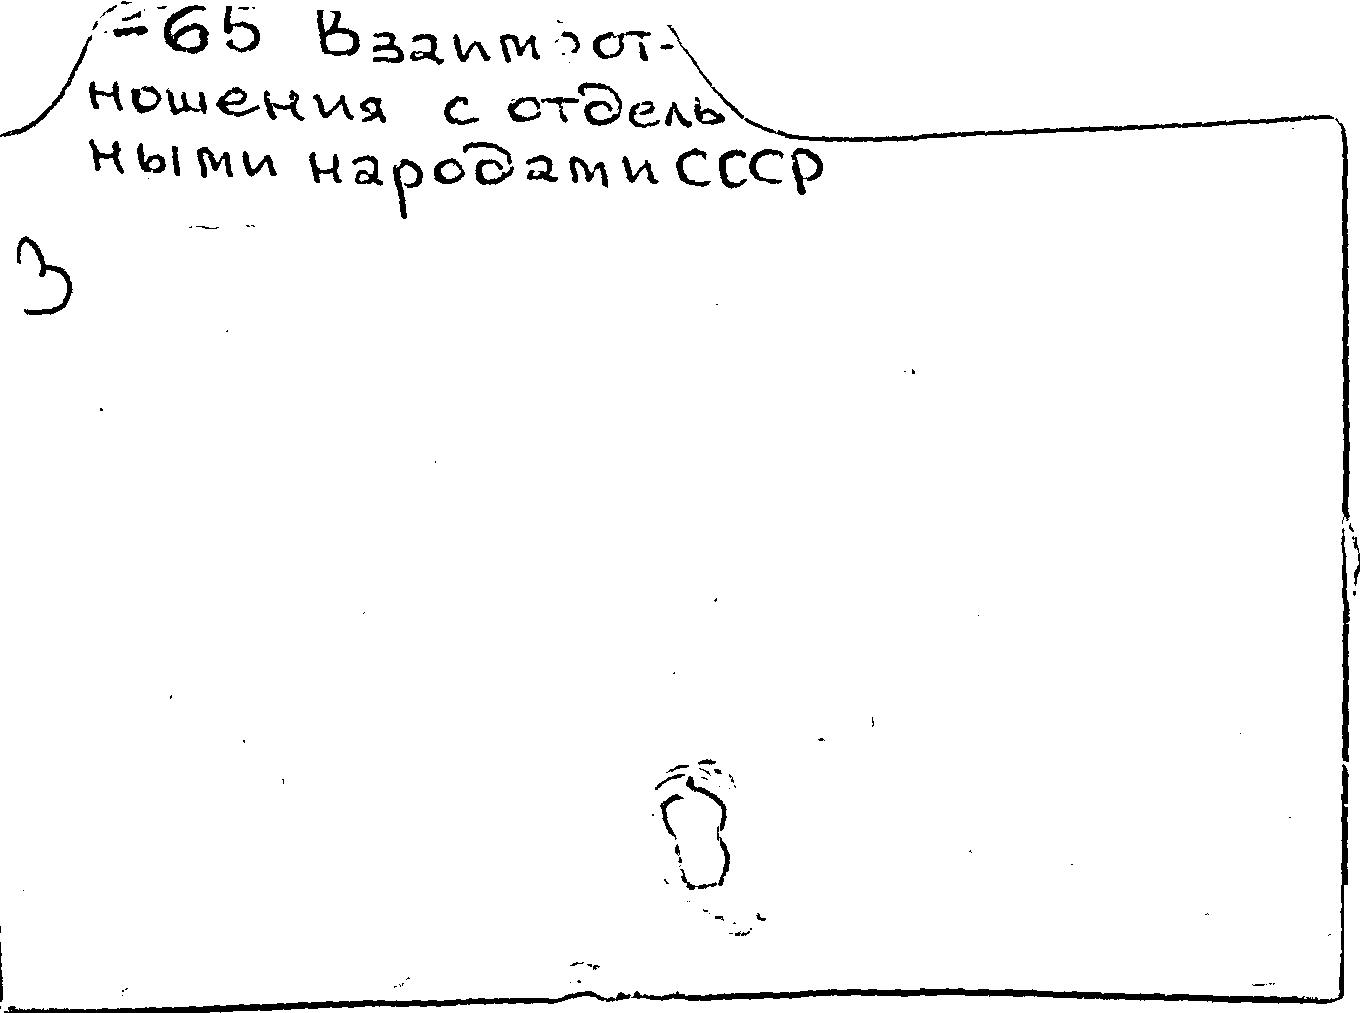 =65 Взаимоот-
ношения с отдель
ными народами СССР
3